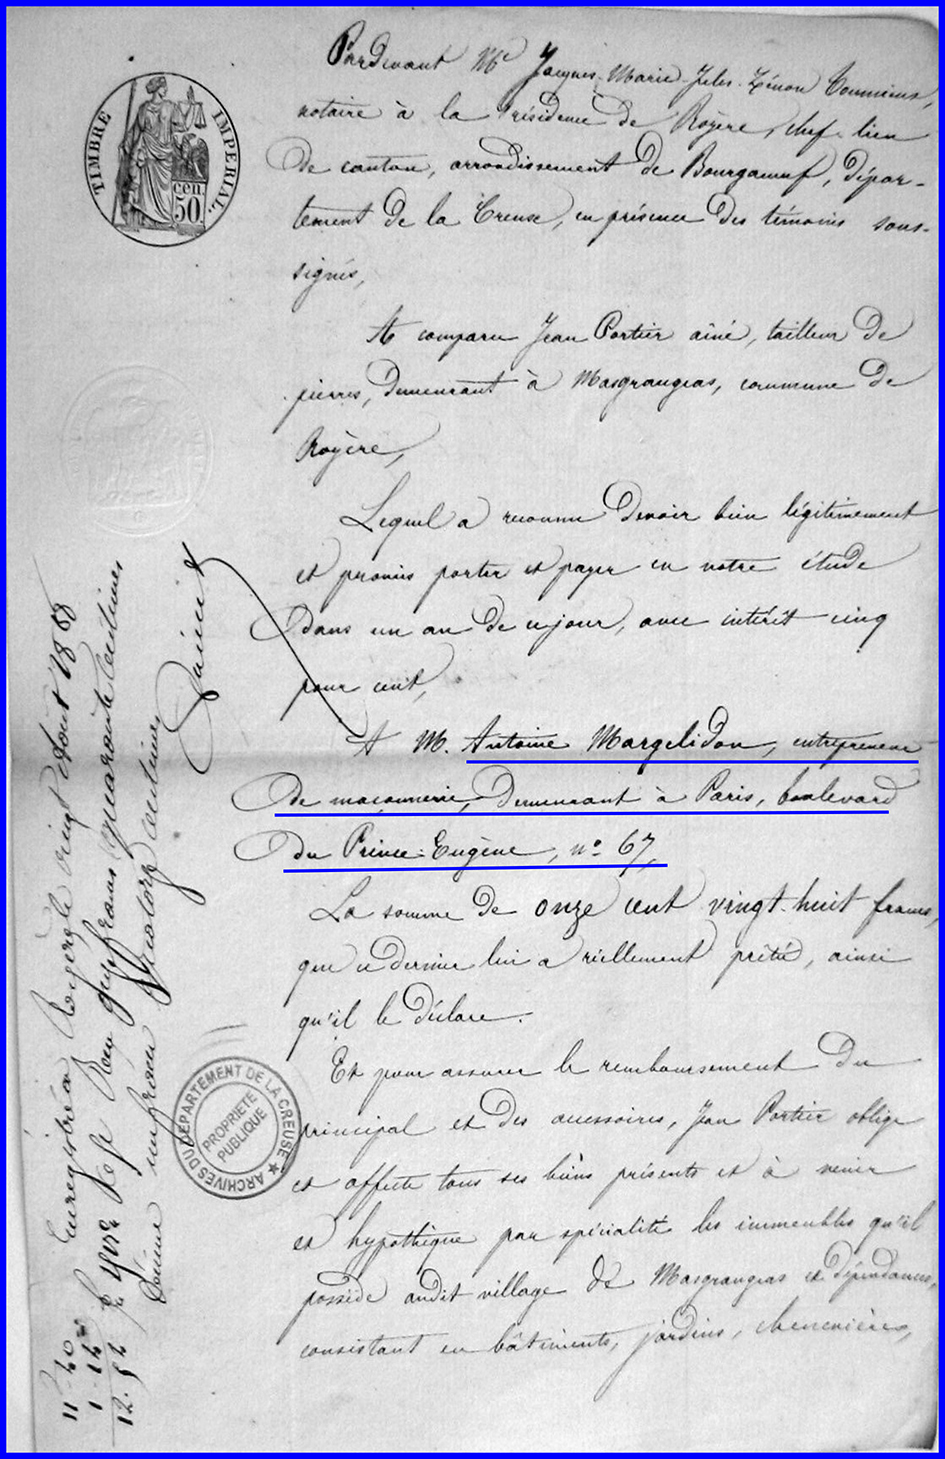 TIMBRE IMPERIAL.
cen.
50
Pardevant Me Jacques-Marie-Jules-Zénon
notaire à la résidence de Royère, chef-lieu
de canton, arrondissement de Bourganeuf, dépar-
tement de la Creuse, en présence des témoins sous-
signés,
A comparu Jean Portier aîné, tailleur de
pierres, demeurant à Masgrangeas, commune de
Royère,
Lequel a reconnu devoir bien légitimement
et promis porter et payer en notre étude
dans un an de ce jour, avec intérêt cinq
pour cent,
A M. Antoine Margelidon, entrepreneur
de maçonnerie, demeurant à Paris, boulevard
du Prince-Eugène, no 67,
La somme de onze cent vingt-huit francs,
que ce dernier lui a réellement prêté, ainsi
qu'il le déclare.
Et pour assurer le remboursement du
principal et des accessoires, Jean Portier oblige
et affecte tous ses biens présents et à venir
et hypothèque par spécialité les immeubles qu'il
possède audit village de Masgrangeas et dépendances,
consistant en bâtiments, jardins, chenevières,
ARCHIVES DU DÉPARTEMENT DE LA CREUSE ★
PROPRIÉTÉ
PUBLIQUE
Enregistré à Royère le vingt août 1868
francs quarante centimes
Décime un franc quatorze centimes
11-40
1-14
12.54